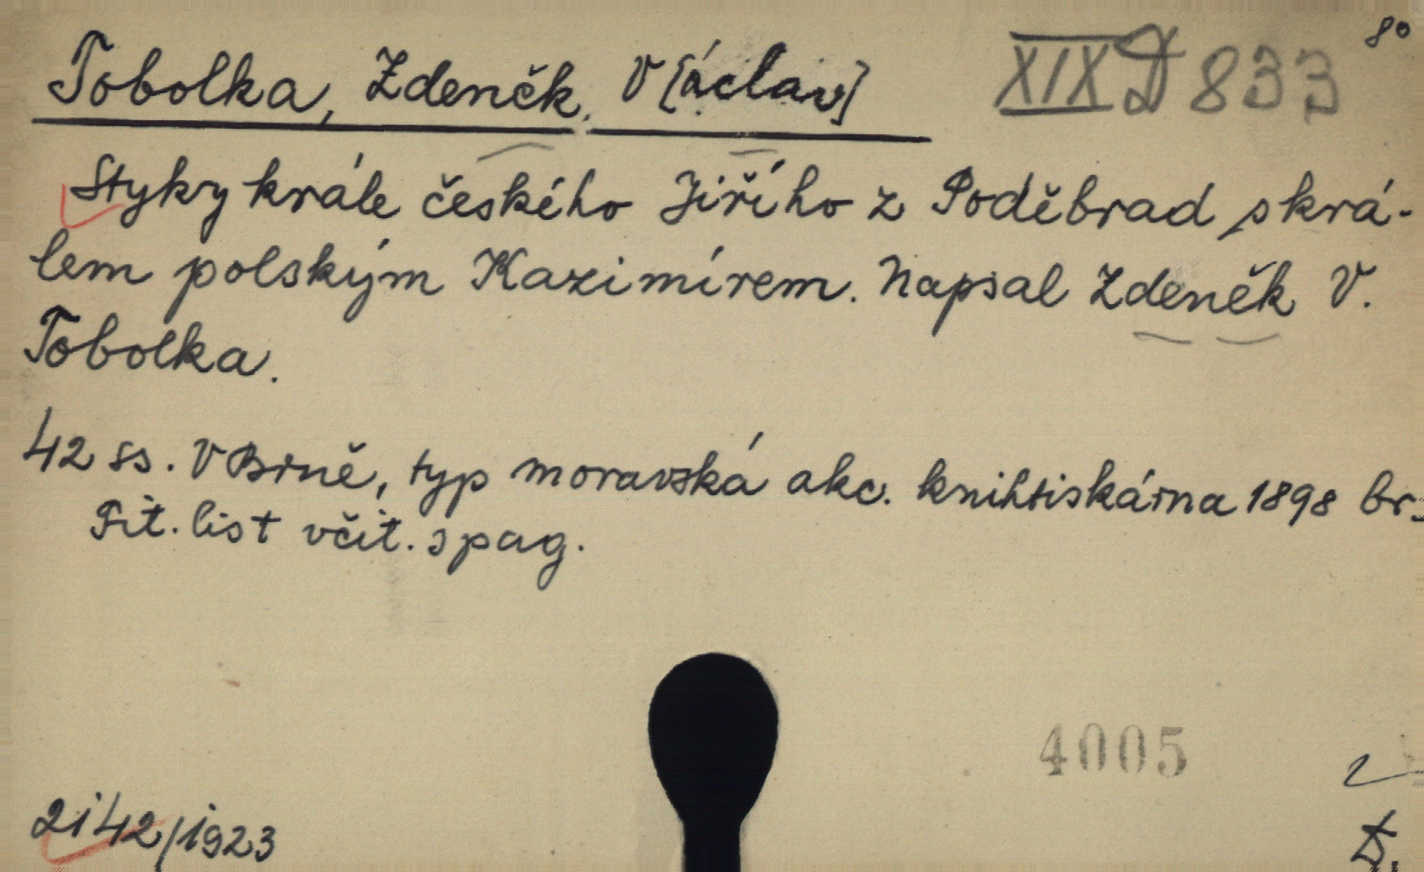 8°
Tobolka, Zdeněk, V[áclav] XIX D 833
Styky krále českého Jiřího z Poděbrad s krá-
lem polským Kazimírem. Napsal Zdeněk V.
Tobolka.
42 ss. V Brně, typ moravská akc. knihtiskárna 1898 br.
Tit. list včit. s pag.
4005
2142/1923